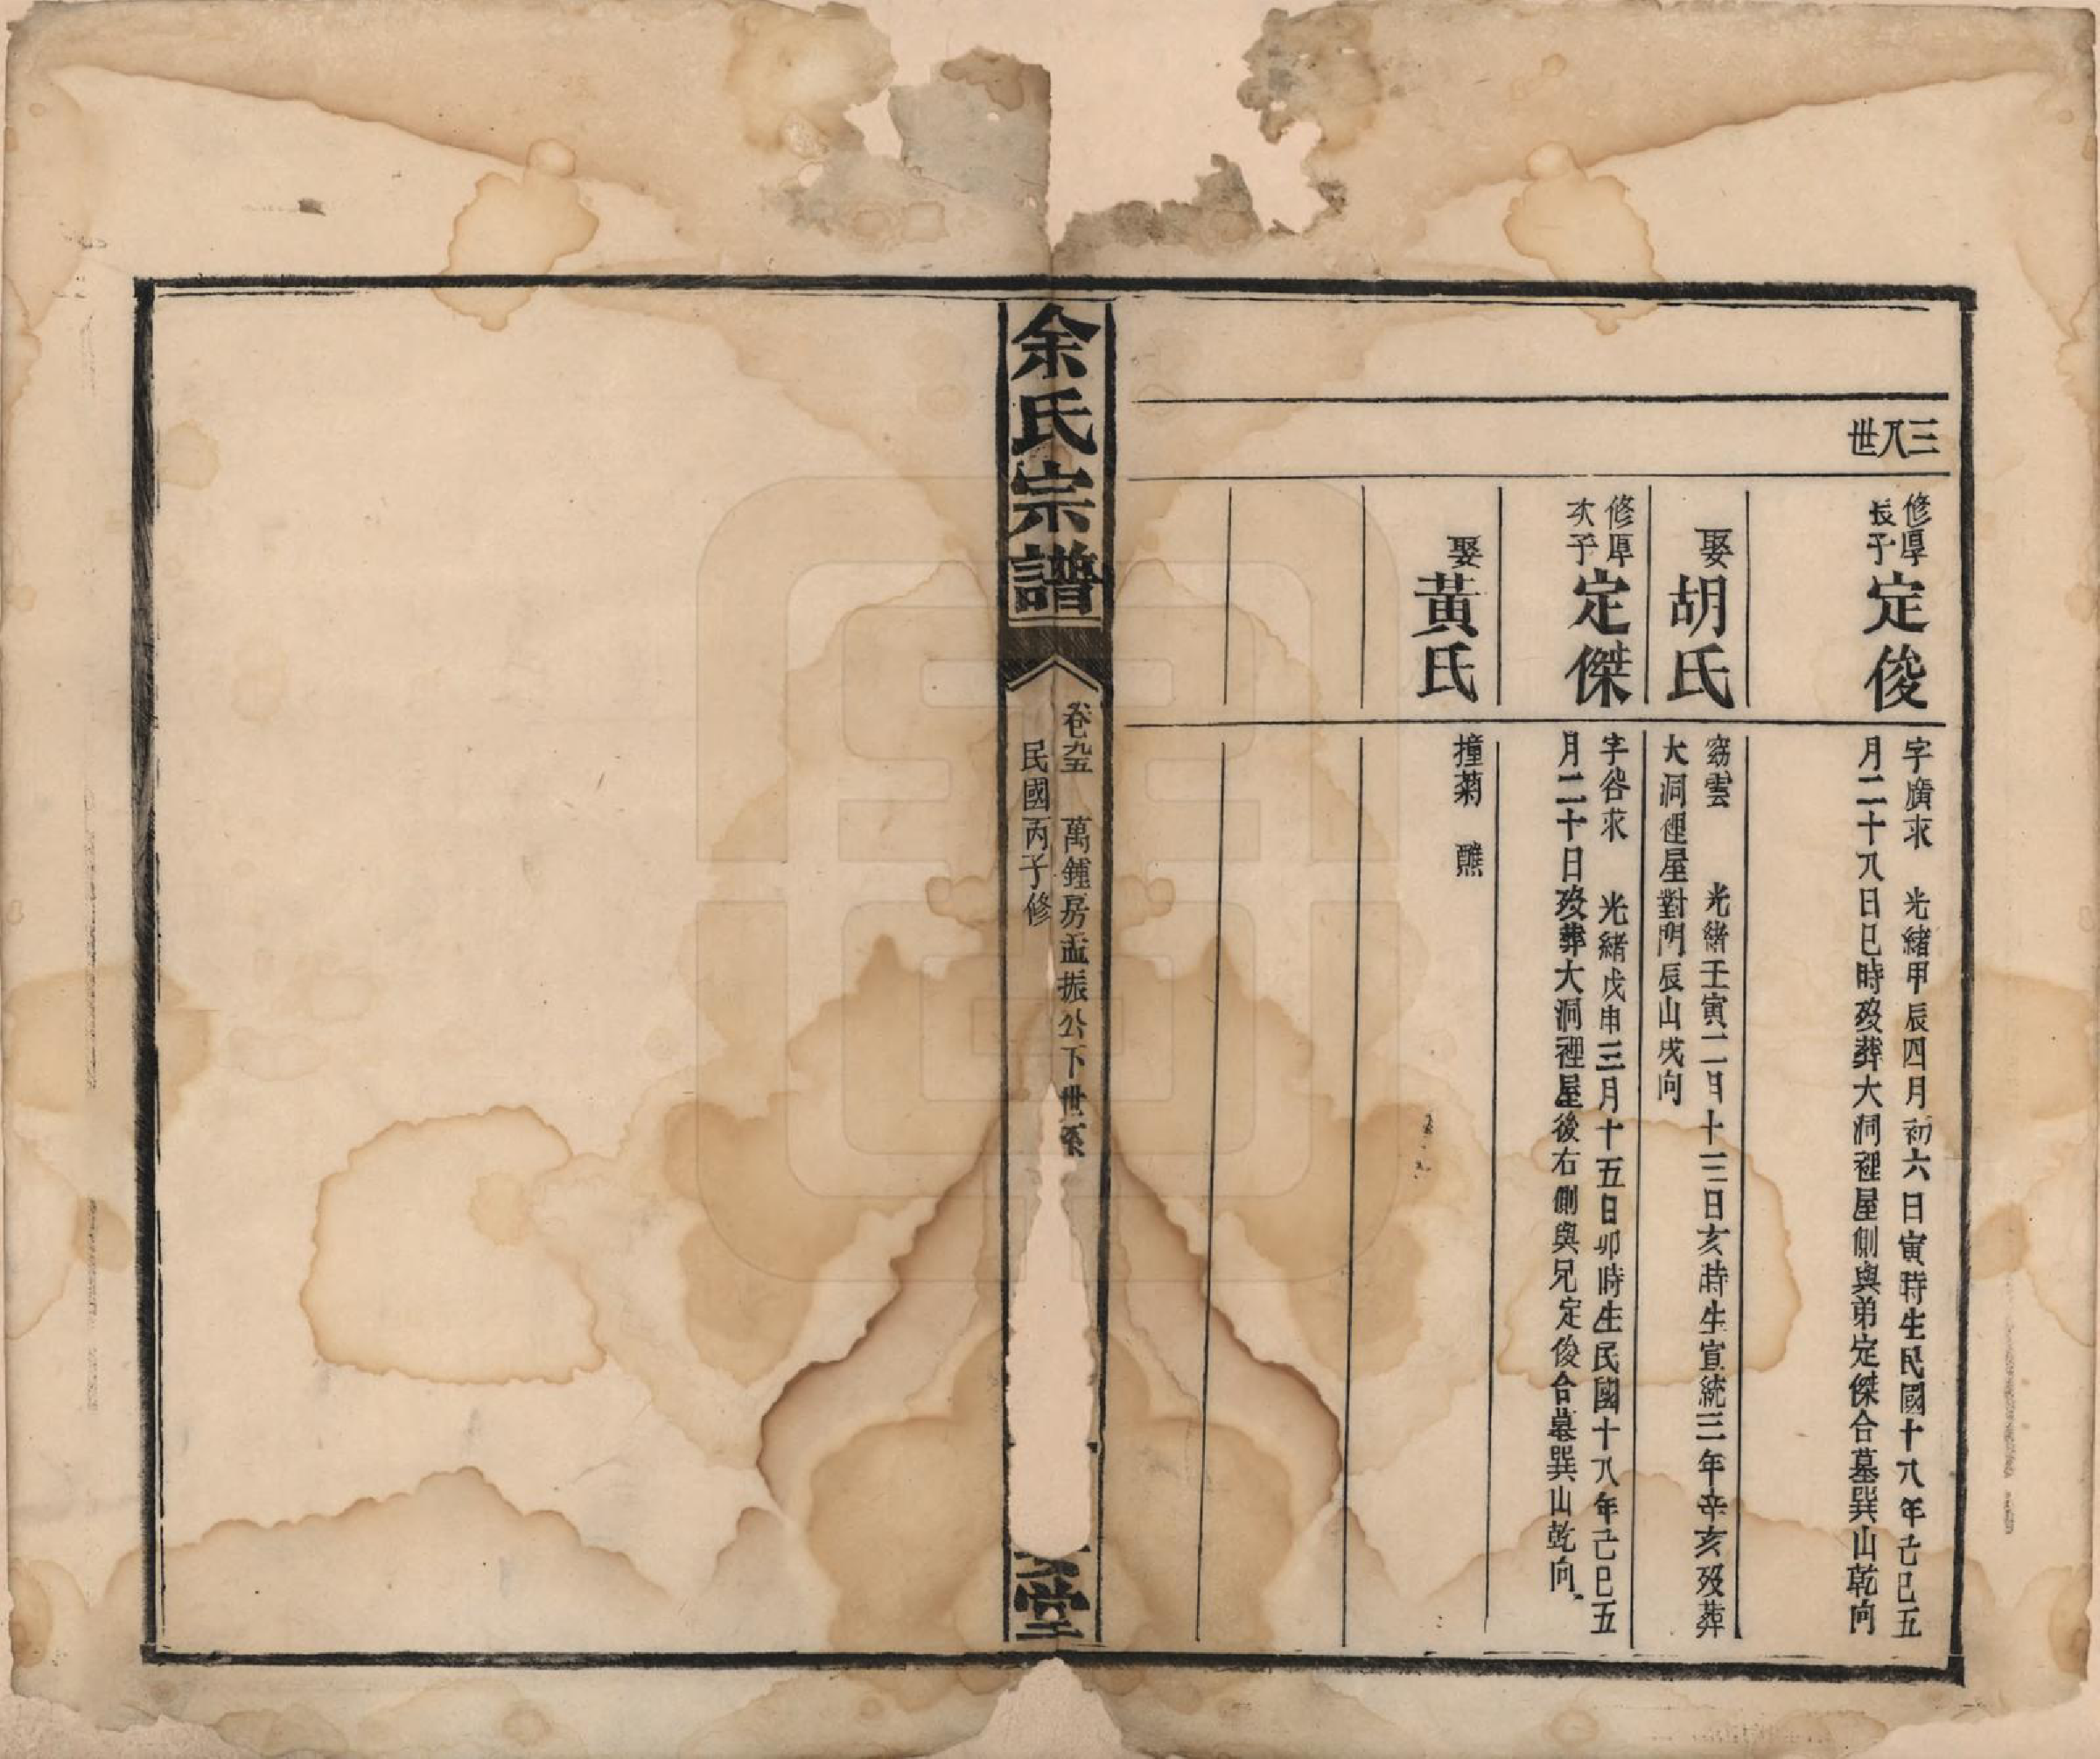 三八世
修厚
長子
定俊
字廣求　光緒甲辰四月初六日寅時生民國十八年己巳五
月二十八日巳時歿葬大洞裡屋側與弟定傑合墓巽山乾向
娶
胡氏
窈雲　光緒壬寅二月十三日亥時生宣統三年辛亥歿葬
大洞裡屋對門辰山戌向
修厚
次子
定傑
字咎求　光緒戊申三月十五日卯時生民國十八年己巳五
月二十日歿葬大洞裡屋後右側與兄定俊合墓巽山乾向
娶
黃氏
撞菊　醮
余氏宗譜
卷五九　萬鍾房孟振公下世系
民國丙子修
堂